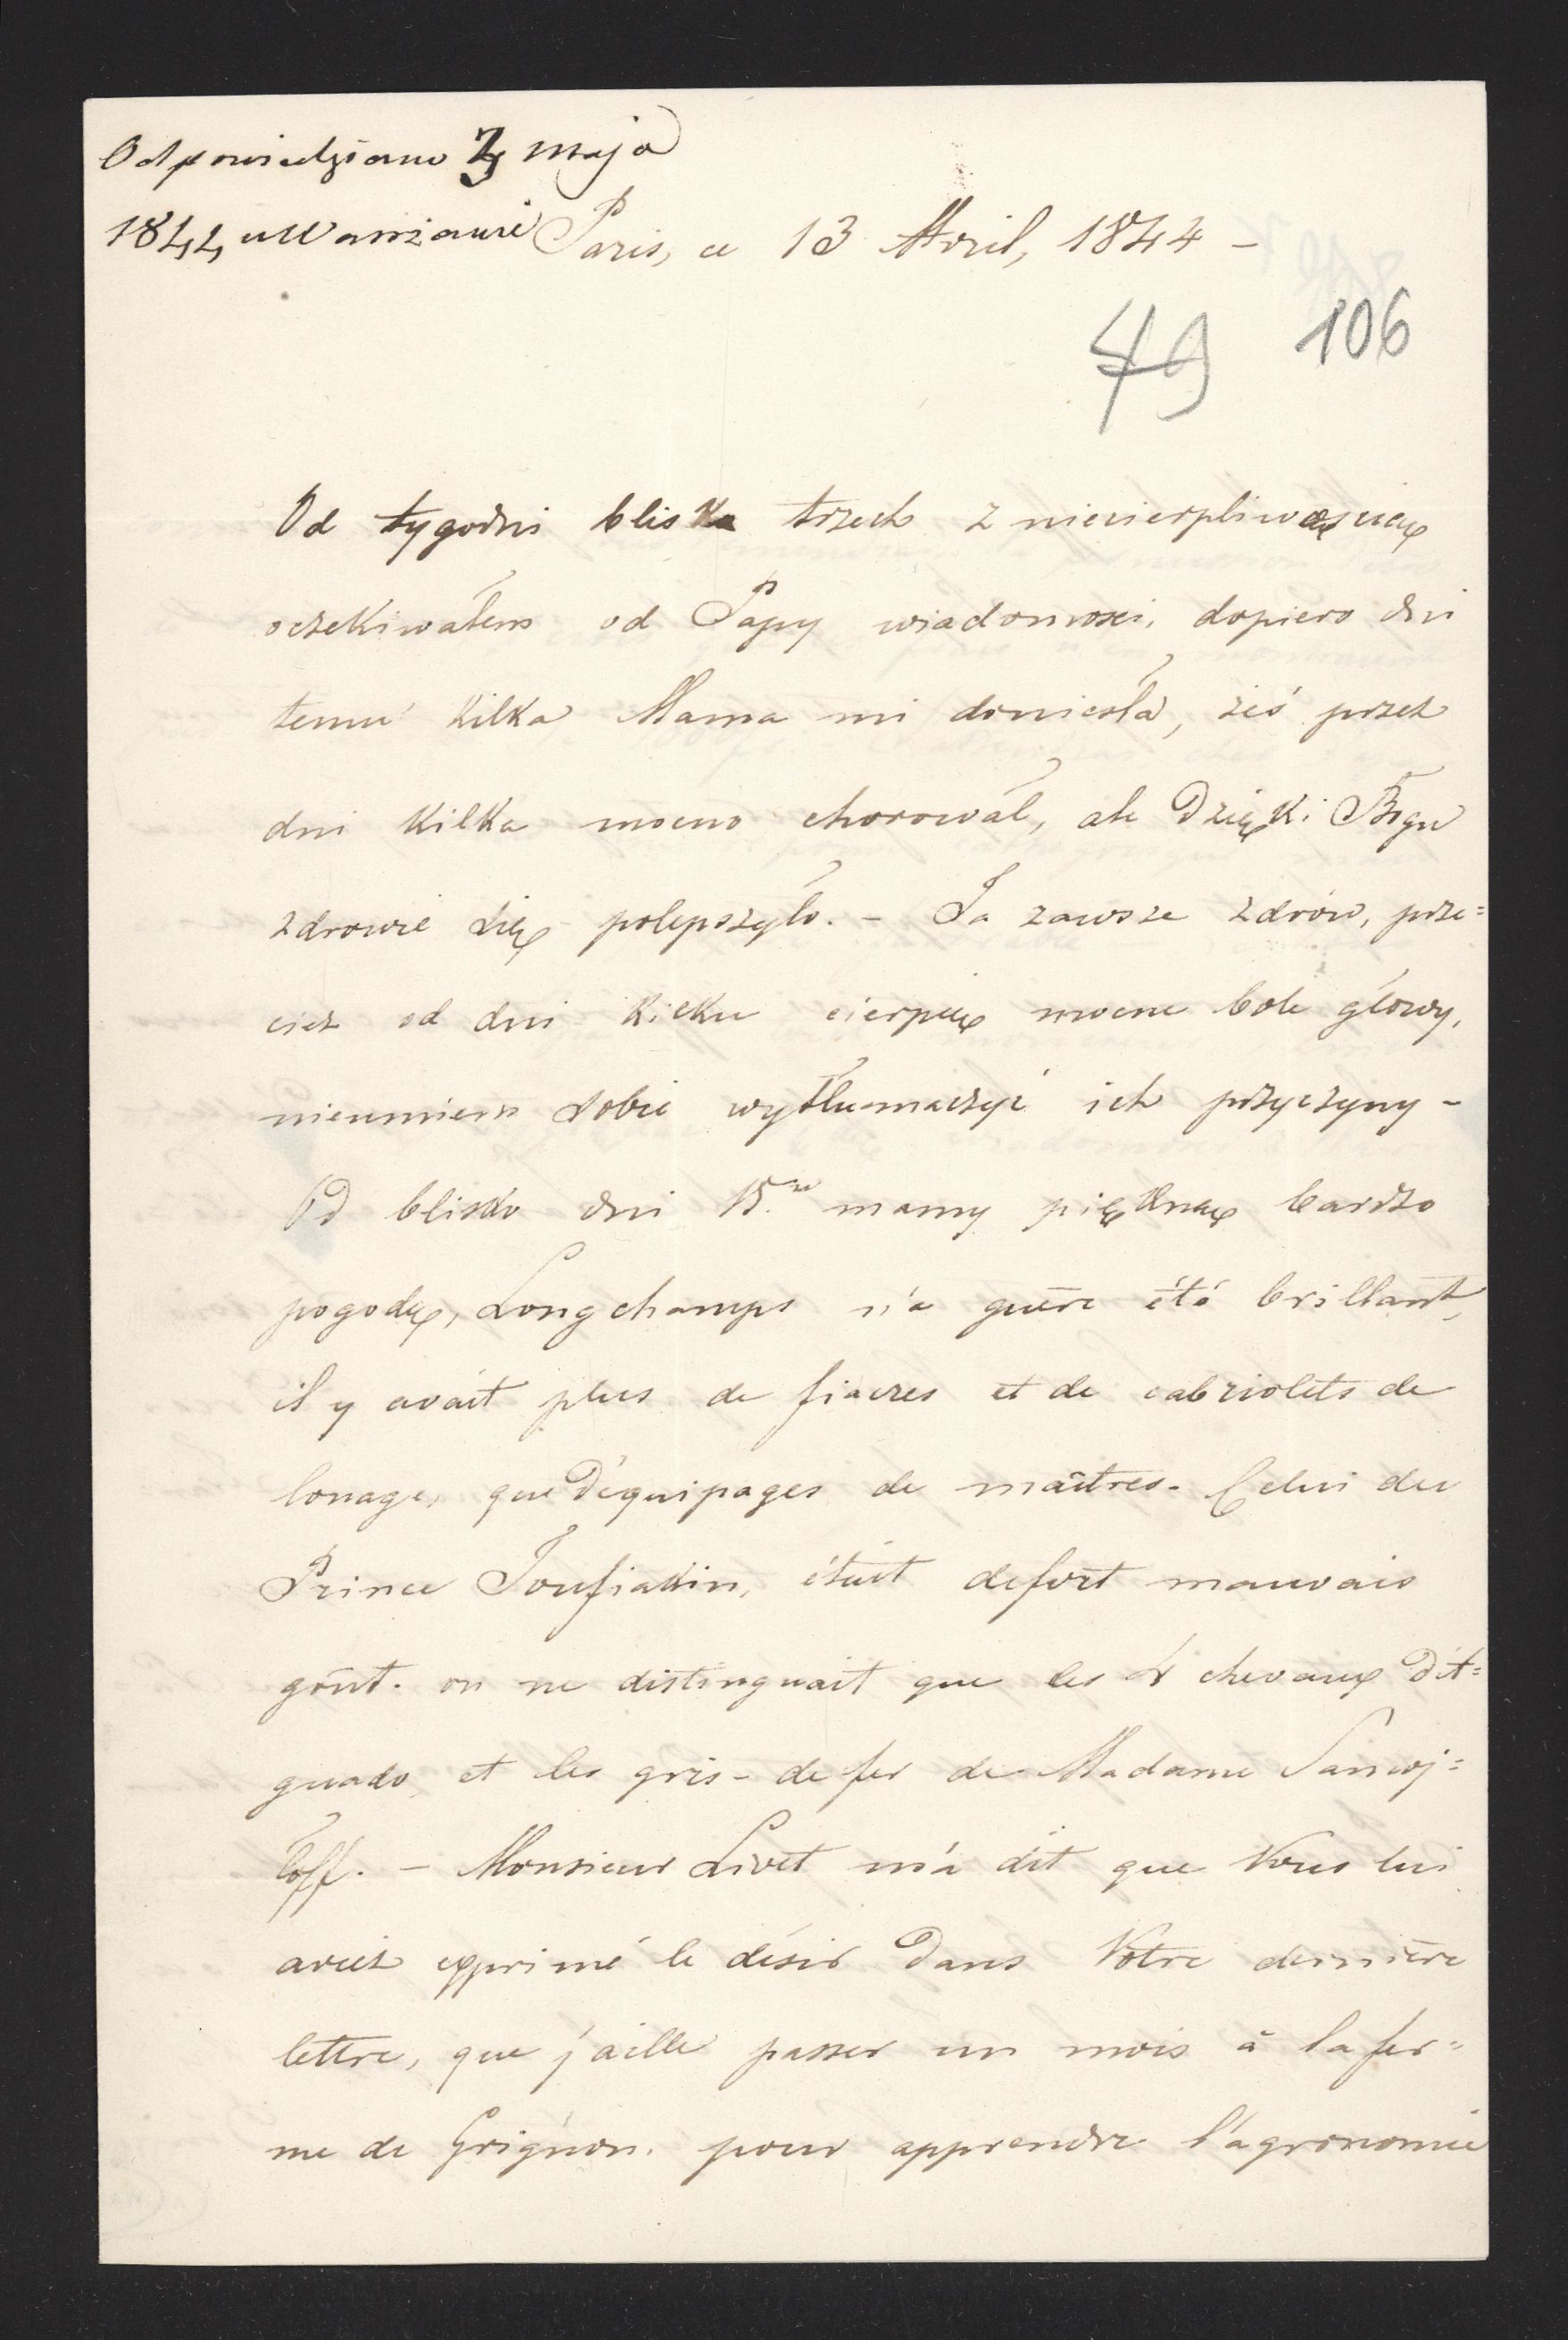 Odpowiedziano 3 maja
1844 w Warszawie
Paris, ce 13 Avril, 1844 -
49 106
Od tygodni bliska trzech z niecierpliwością
oczekiwałem od Papy wiadomości, dopiero dni
temu kilka Mama mi doniosła, żeś przez
dni kilka mocno chorował, ale Dzięki Bogu
zdrowie się polepszyło. - Ja zawsze zdrów, prze=
cież od dni kilku cierpię mocne bole głowy,
nieumiem sobie wytłumaczyć ich przyczyny -
Od blisko dni 15.tu mamy piękną bardzo
pogodę, Longchamps n'a guère été brillant,
il y avait plus de fiacres et de cabriolets de
louage, que d'équipages de maîtres. Celui du
Prince Toufiakin, était de fort mauvais
goût. on ne distinguait que les 4 chevaux d'A=
guado et les gris-de fer de Madame Samoj=
łoff. - Monsieur Livet m'a dit que Vous lui
aviez exprimé le désir dans Votre dernière
lettre, que j'aille passer un mois à la fer=
me de Grignon. pour apprendre l'agronomie